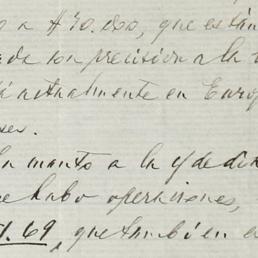 a $40.000, que están
con precisión a la
actualmente en Europ
ses.
En cuanto a la y de di
hubo operaciones,
69, que también e